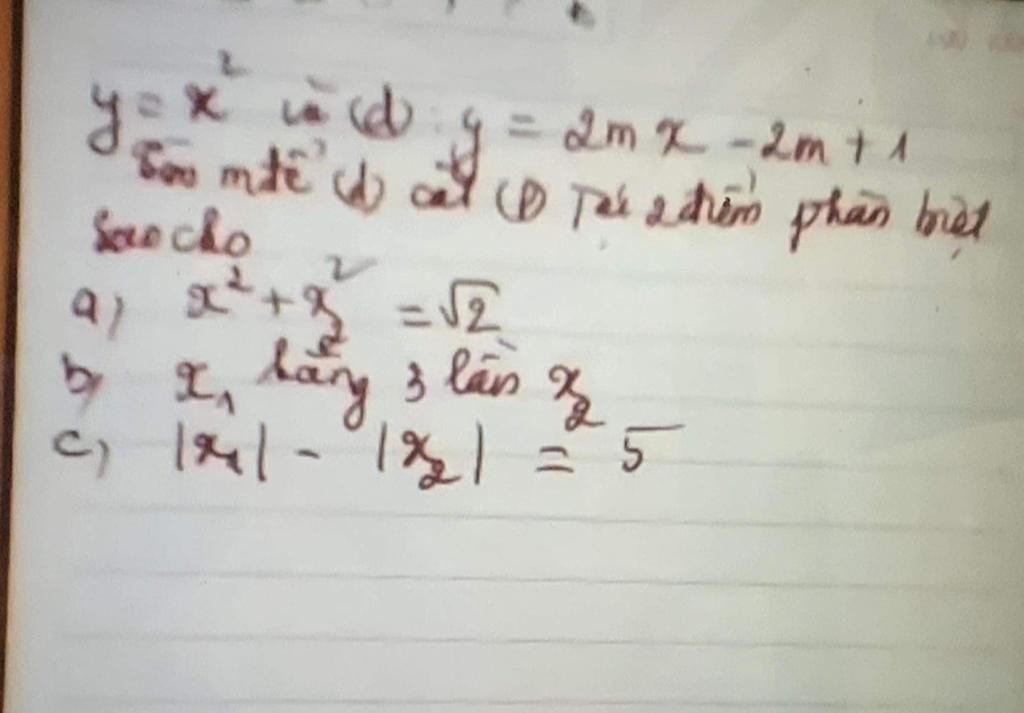 y = x² và (d): y = 2mx - 2m + 1
Tìm m để (d) cắt (P) Tại 2 điểm phân biệt
Sao cho
a) x² + x₂² = √2
b) x₁ bằng 3 lần x₂
c) |x₁| - |x₂| = 5